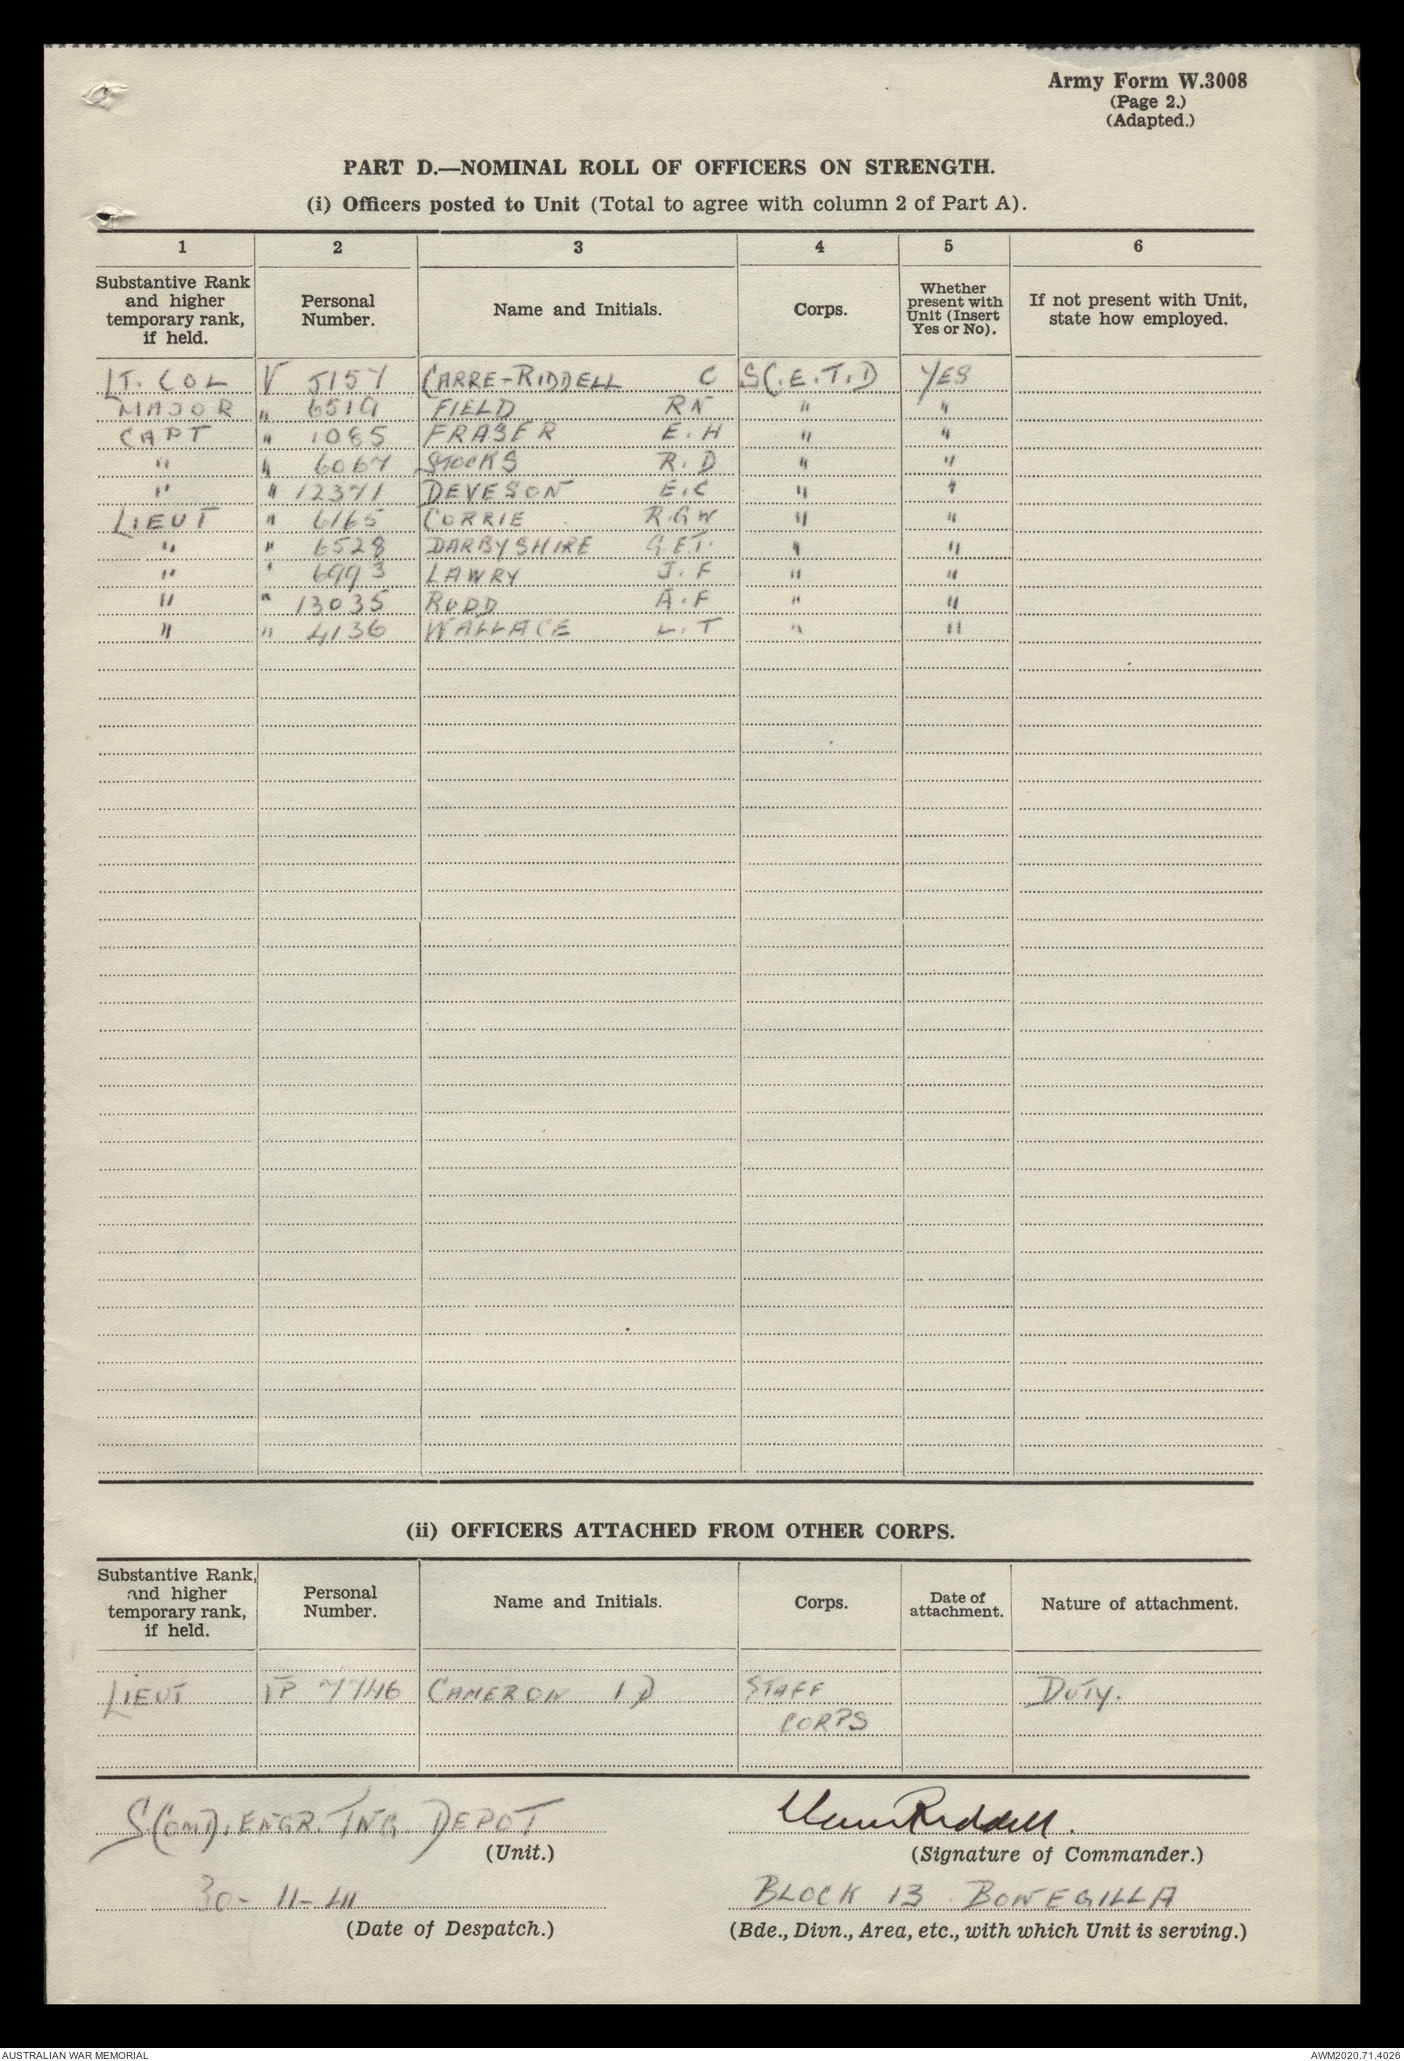 Army Form W.3008
(Page 2.)
(Adapted.)
PART D.—NOMINAL ROLL OF OFFICERS ON STRENGTH.
(i) Officers posted to Unit (Total to agree with column 2 of Part A).
1 2 3 4 5 6
Substantive Rank and higher temporary rank, if held. Personal Number. Name and Initials. Corps. Whether present with Unit (Insert Yes or No). If not present with Unit, state how employed.
LT. COL V 5157 CARRE-RIDDELL C S.C.E.T.D YES
MAJOR " 6519 FIELD RN " "
CAPT " 1085 FRASER E.H " "
" " 6067 STOCKS R.D " "
" " 12371 DEVESON E.C " "
LIEUT " 6165 CORRIE R.G.W " "
" " 6528 DARBYSHIRE G.E.T. " "
" " 6993 LAWRY J.F " "
" " 13035 RUDD A.F " "
" " 4136 WALLACE L.T " "
(ii) OFFICERS ATTACHED FROM OTHER CORPS.
Substantive Rank, and higher temporary rank, if held. Personal Number. Name and Initials. Corps. Date of attachment. Nature of attachment.
LIEUT VP 7746 CAMERON I D STAFF DUTY.
CORPS
S. COMD. ENGR. TNG. DEPOT
(Unit.)
(Signature of Commander.)
30-11-41 BLOCK 13 BONEGILLA
(Date of Despatch.) (Bde., Divn., Area, etc., with which Unit is serving.)
AUSTRALIAN WAR MEMORIAL AWM2020.71.4026